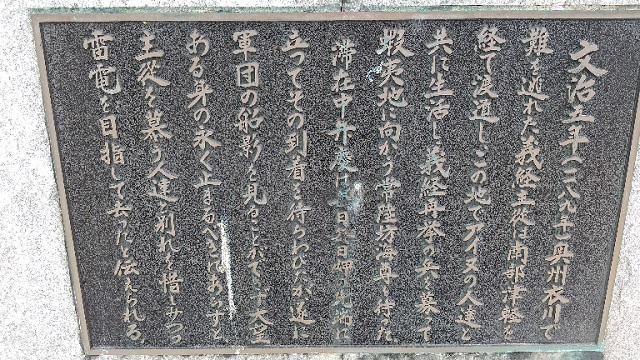 文治五年（一一八九年）奥州衣川で
難を逃れた義経主従は南部津軽を
経て渡道し、この地でアイヌの人達と
共に生活し義経再挙の兵を募って
蝦夷地に向かう常陸坊海尊を待った。
滞在中弁慶は毎日弁慶岬の先端に
立ってその到着を待ちわびたが遂に
軍団の船影を見ることができず大望
ある身の永く止まるべきにあらずと
主従を慕う人達と別れを惜しみつつ
雷電を目指して去ったと伝えられる。